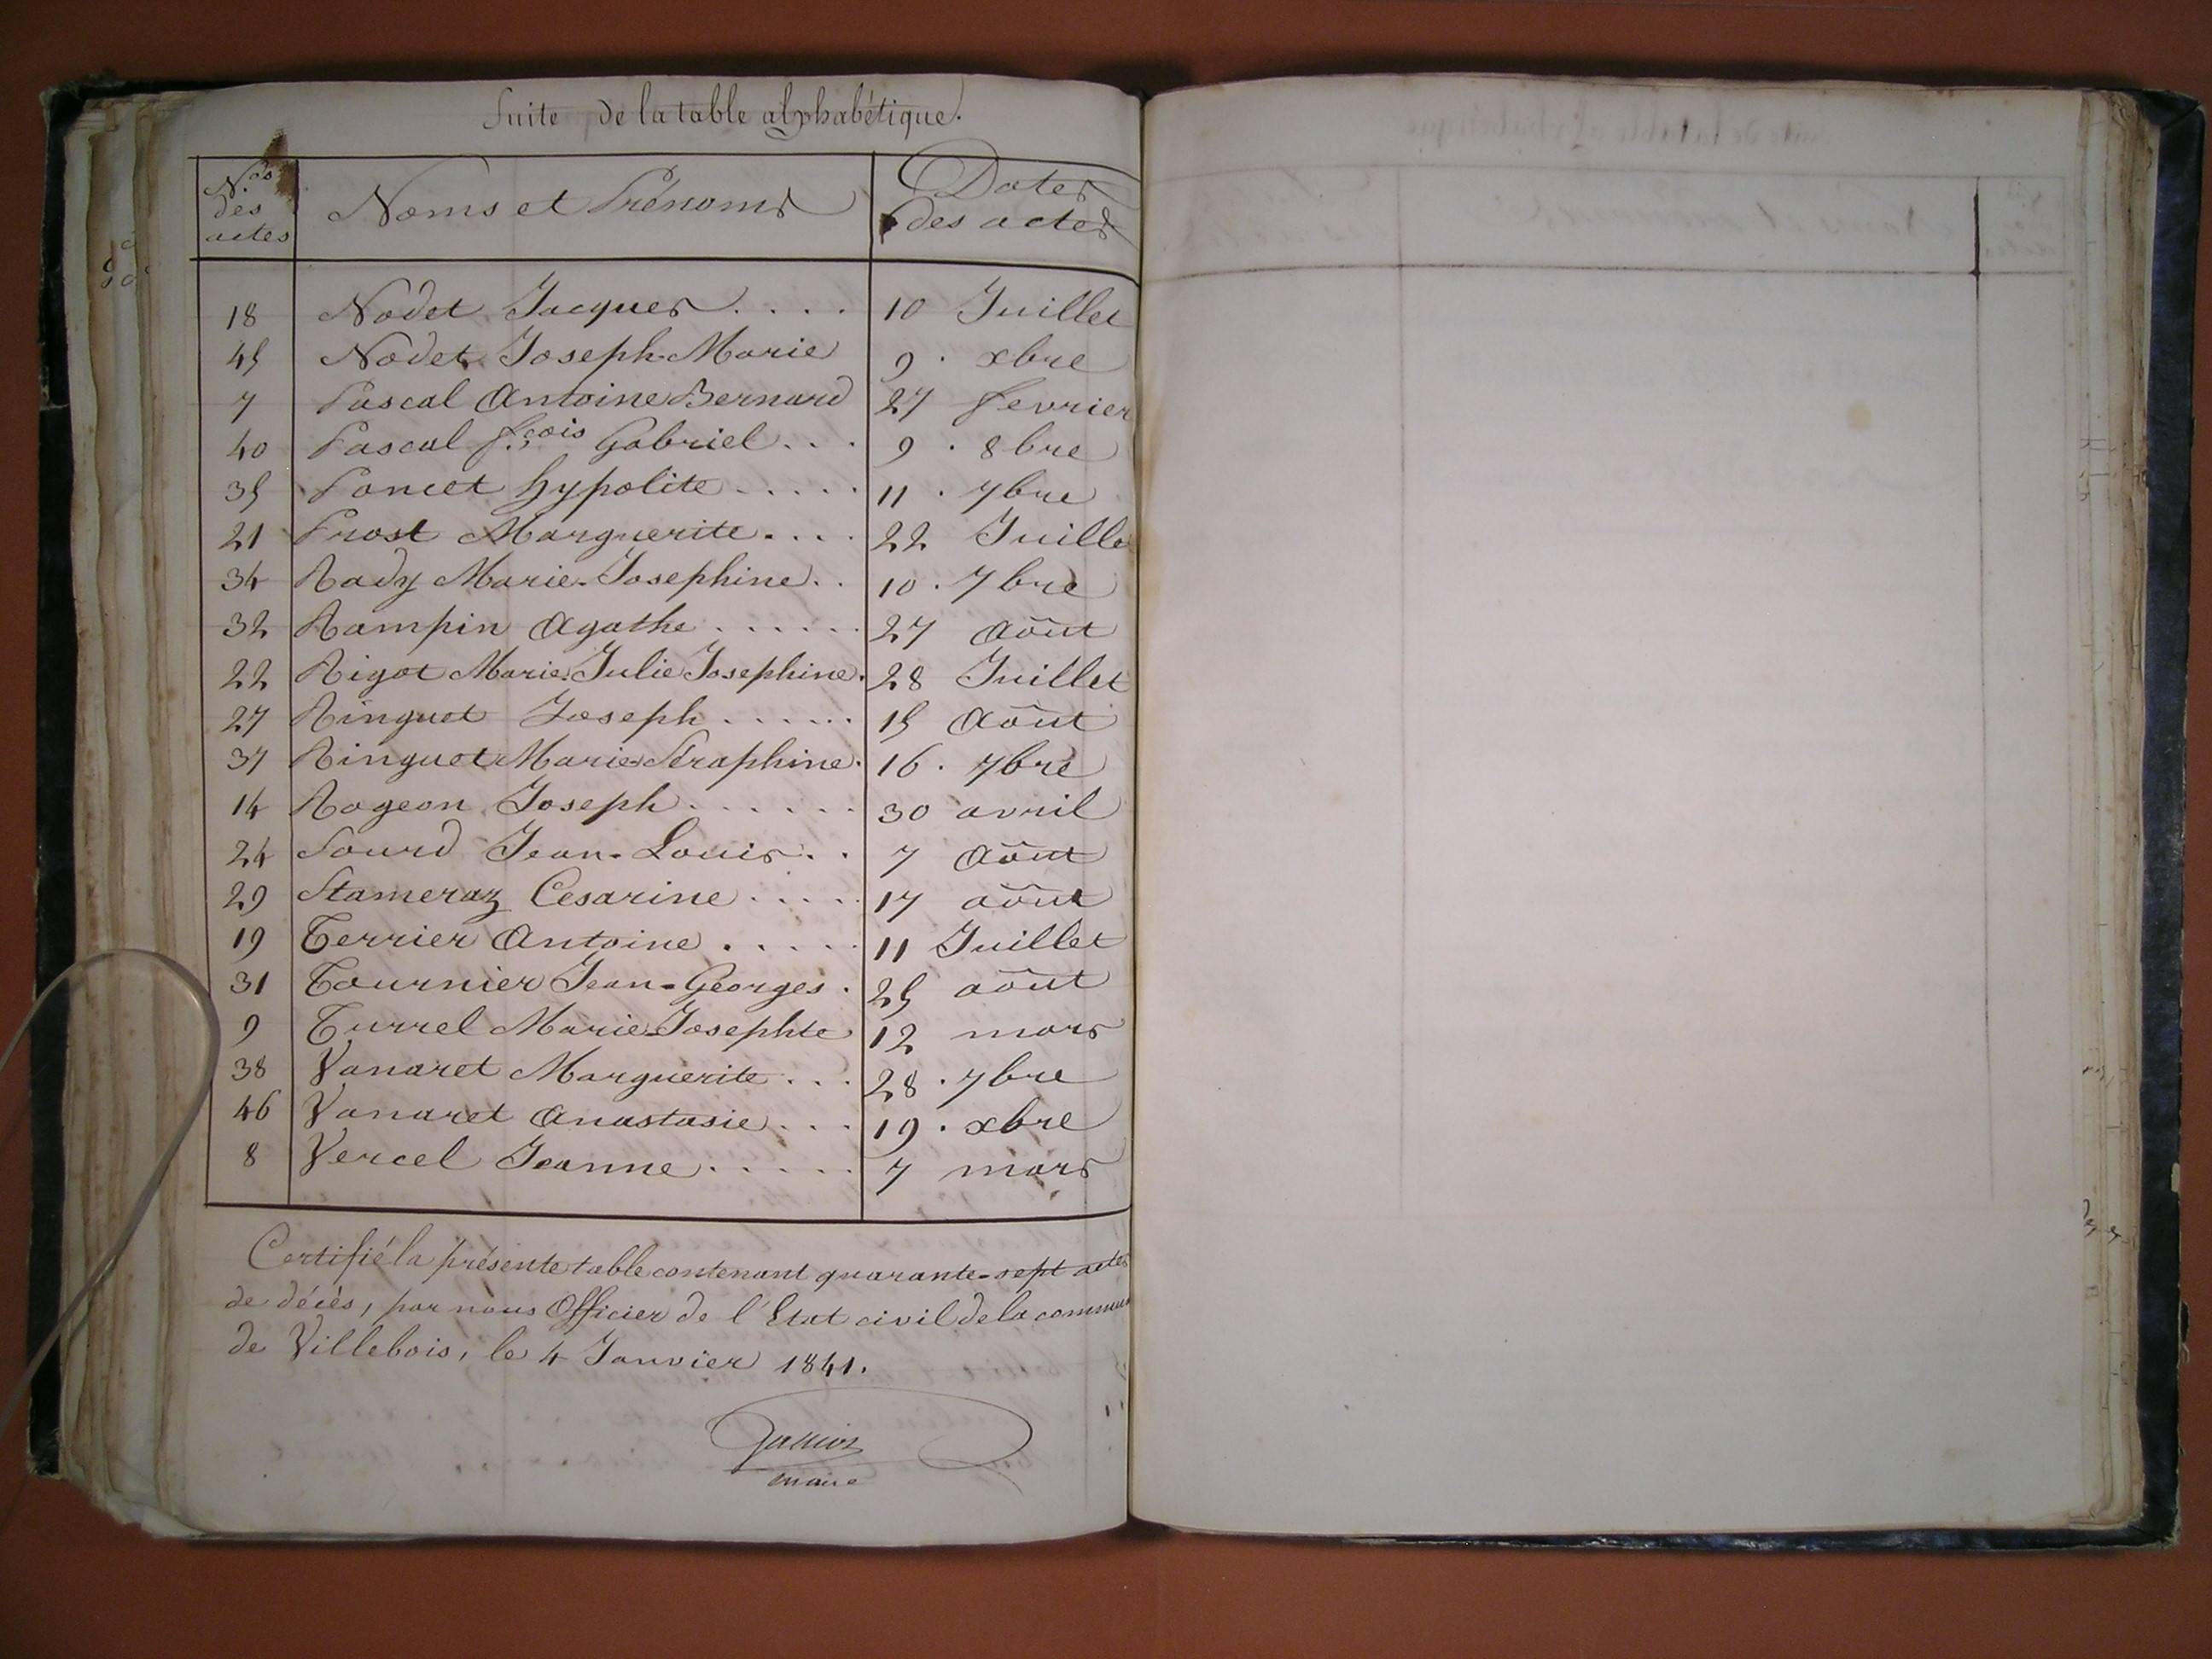 Suite de la table alphabétique.
Nos des actes Noms et Prénoms Dates des actes
18 Nodet Jacques.... 10 Juillet
45 Nodet Joseph-Marie 9. xbre
7 Pascal Antoine Bernard 27 fevrier
40 Pascal f.çois Gabriel... 9. 8bre
35 Poncet hypolite..... 11. 7bre
21 Prost Marguerite.... 22 Juillet
34 Rady Marie-Josephine.. 10. 7bre
32 Rampin Agathe...... 27 Août
22 Rigot Marie Julie Josephine. 28 Juillet
27 Ringuet Joseph...... 15 Août
37 Ringuet Marie Séraphine. 16. 7bre
14 Rogeon Joseph...... 30 avril
24 Sourd Jean-Louis.. 7 Août
29 Stameraz Cesarine..... 17 août
19 Terrier Antoine..... 11 Juillet
31 Tournier Jean-Georges. 25 août
9 Turrel Marie-Josephte 12 mars
38 Vanaret Marguerite... 28. 7bre
46 Vanaret Anastasie... 19. xbre
8 Vercel Jeanne..... 7 mars
Certifié la présente table contenant quarante-sept actes
de décès, par nous Officier de l'Etat civil de la commune
de Villebois, le 4 Janvier 1841.
maire